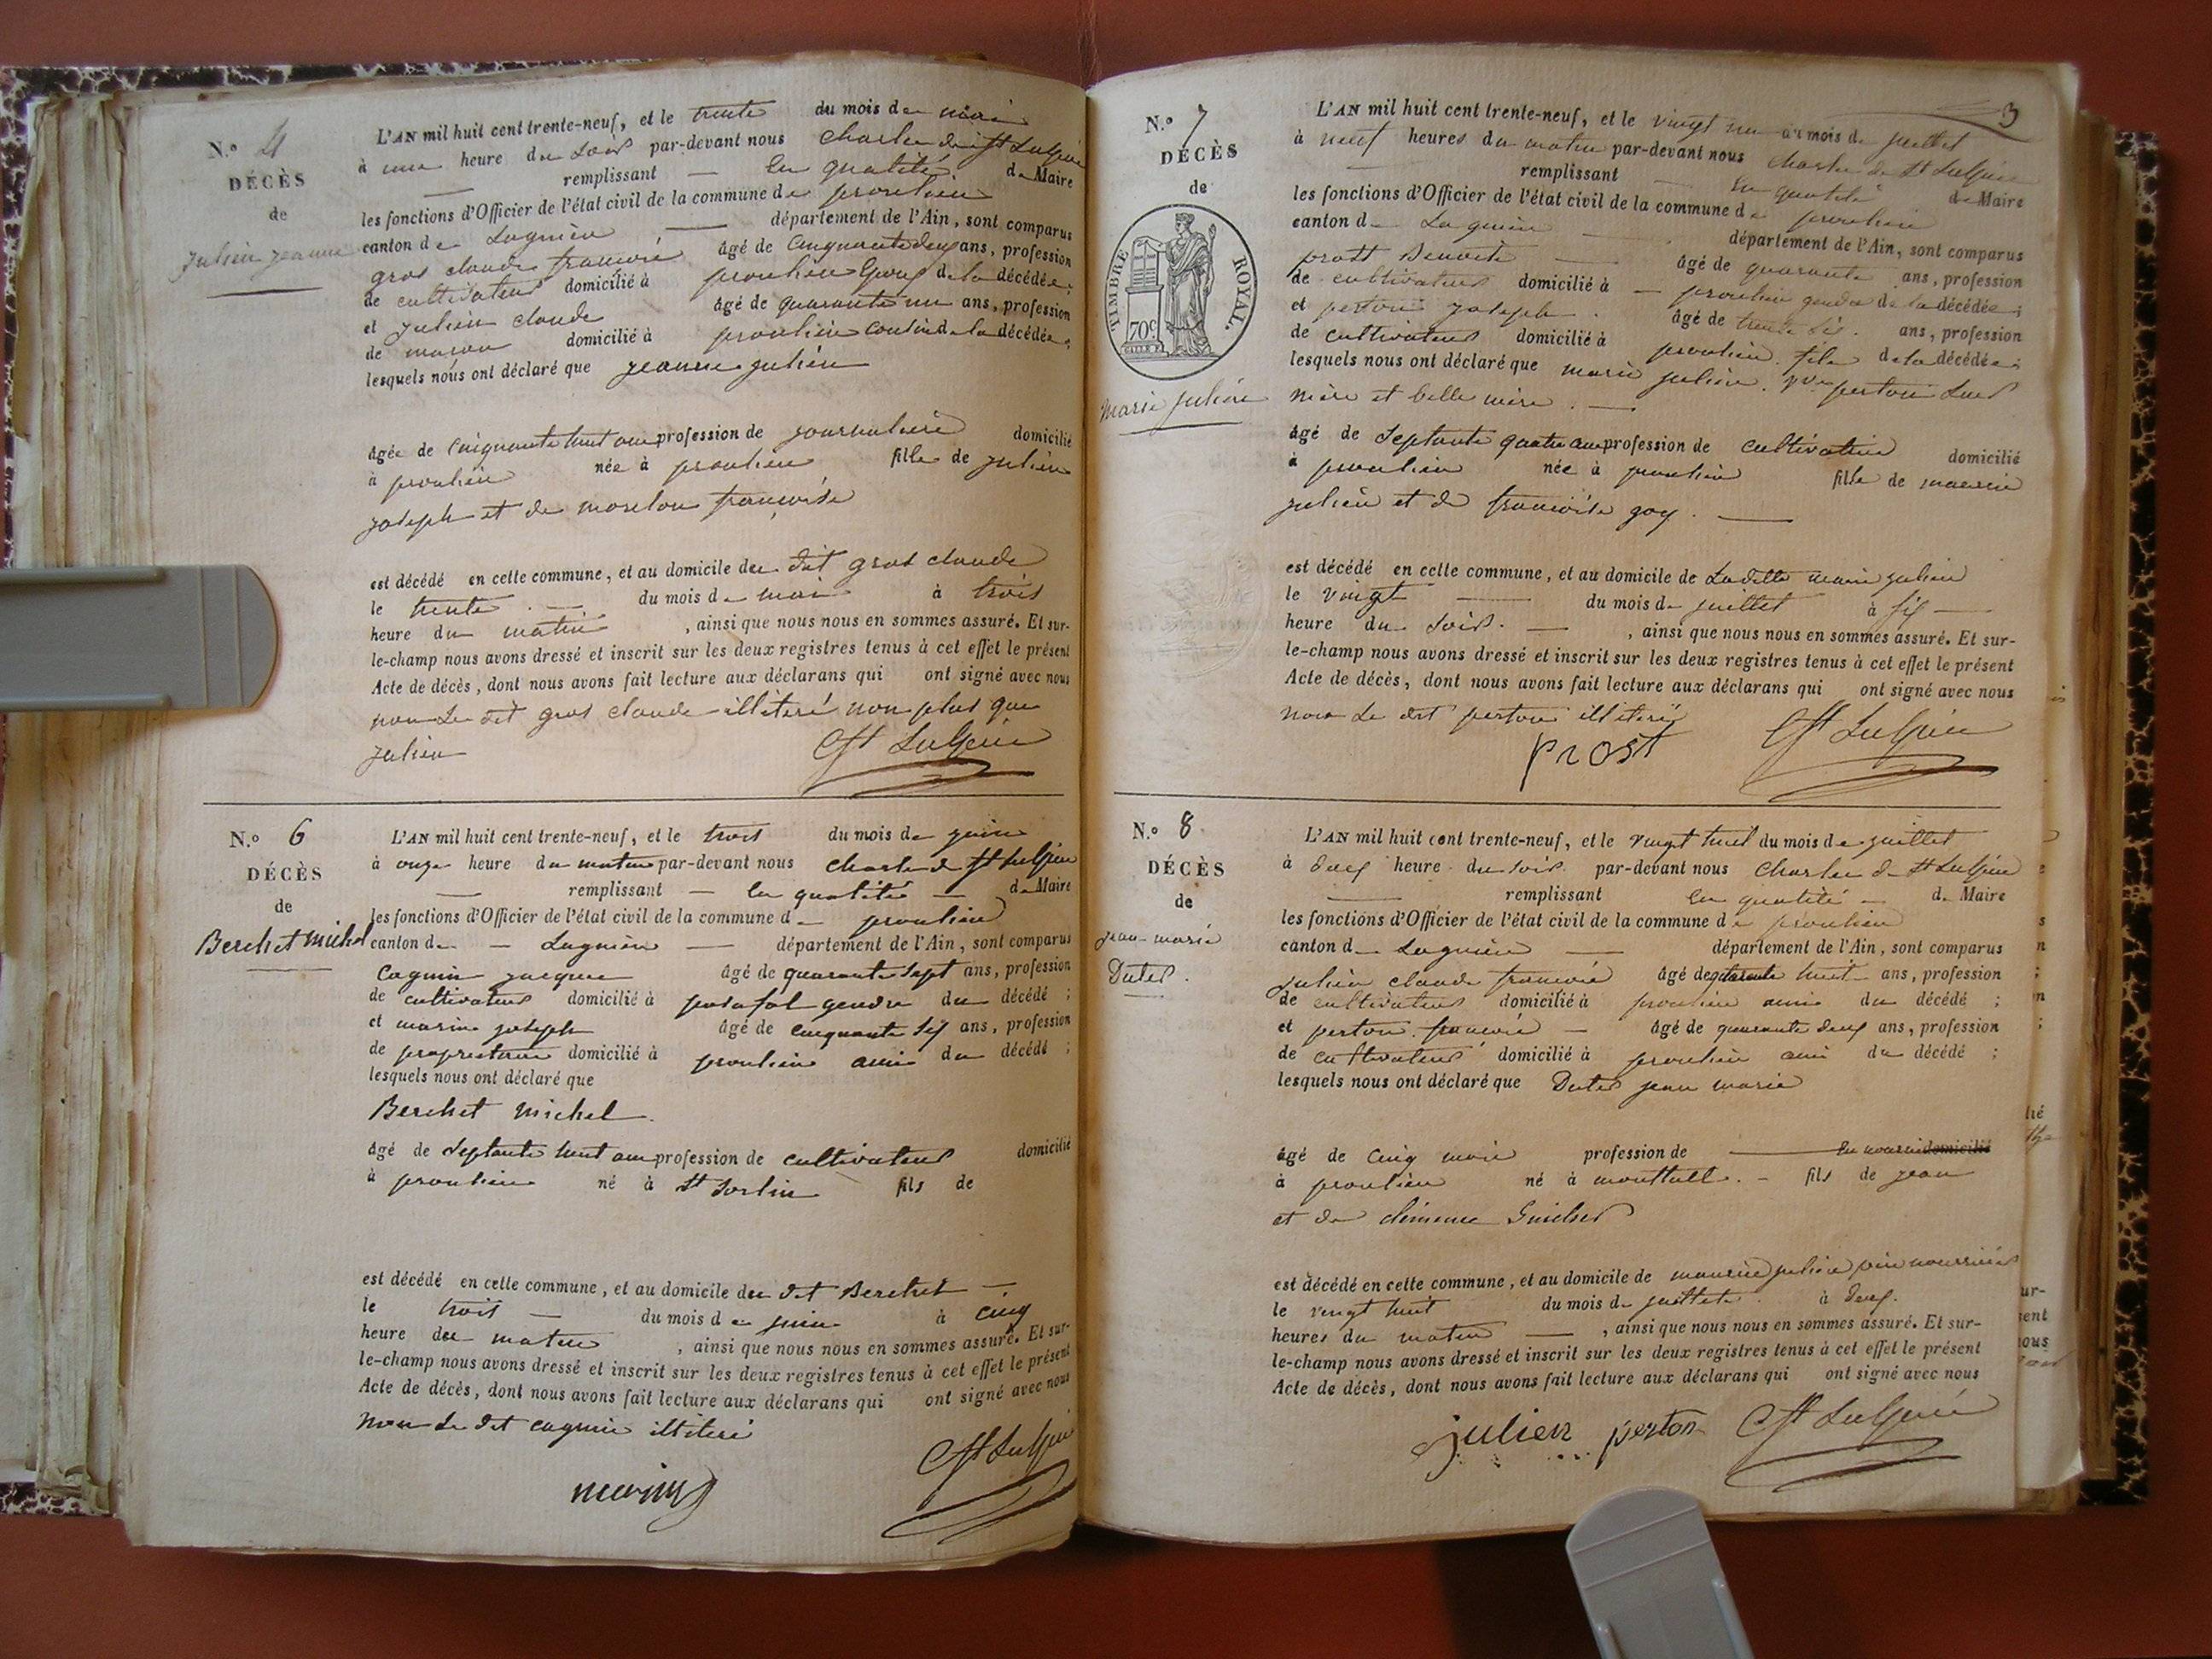 N.° 4
DÉCÈS
de
Julien jeanne
L'AN mil huit cent trente-neuf, et le trente du mois de mai
à une heure du soir par-devant nous Charles de St Sulpice
remplissant en qualité de Maire
les fonctions d'Officier de l'état civil de la commune de proulieu
canton de Lagnieu département de l'Ain, sont comparus
gros claude françois âgé de cinquante deux ans, profession
de cultivateur domicilié à proulieu Epoux de la décédée;
et Julien claude âgé de quarante un ans, profession
de maçon domicilié à proulieu cousin de la décédée;
lesquels nous ont déclaré que jeanne julien
âgée de cinquante huit ans profession de journaliere domicilié
à proulieu née à proulieu fille de julien
joseph et de morelon françoise
est décédé en cette commune, et au domicile du dit gros claude
le trente du mois de mai à trois
heure du matin, ainsi que nous nous en sommes assuré. Et sur-
le-champ nous avons dressé et inscrit sur les deux registres tenus à cet effet le présent
Acte de décès, dont nous avons fait lecture aux déclarans qui ont signé avec nous
non le dit gros claude illiteré non plus que
julien
C St Sulpice
N.° 6
DÉCÈS
de
Berchet michel
L'AN mil huit cent trente-neuf, et le trois du mois de juin
à onze heure du matin par-devant nous Charles de St Sulpice
remplissant en qualité de Maire
les fonctions d'Officier de l'état civil de la commune de proulieu
canton de Lagnieu département de l'Ain, sont comparus
Cagnin jacques âgé de quarante sept ans, profession
de cultivateur domicilié à posafol gendre du décédé;
et marin joseph âgé de cinquante six ans, profession
de propriétaire domicilié à proulieu ami du décédé;
lesquels nous ont déclaré que
Berchet michel
âgé de septante huit ans profession de cultivateur domicilié
à proulieu né à St Sorlin fils de
est décédé en cette commune, et au domicile du dit Berchet
le trois du mois de juin à cinq
heure du matin, ainsi que nous nous en sommes assuré. Et sur-
le-champ nous avons dressé et inscrit sur les deux registres tenus à cet effet le présent
Acte de décès, dont nous avons fait lecture aux déclarans qui ont signé avec nous
non le dit cagnin illiteré
marin
C St Sulpice
3
N.° 7
DÉCÈS
de
TIMBRE ROYAL.
70c
marie julien
L'AN mil huit cent trente-neuf, et le vingt un du mois de juillet
à neuf heures du matin par-devant nous Charles de St Sulpice
remplissant en qualité de Maire
les fonctions d'Officier de l'état civil de la commune de proulieu
canton de Lagnieu département de l'Ain, sont comparus
prost Benoit âgé de quarante ans, profession
de cultivateur domicilié à proulieu gendre de la décédée;
et perton joseph âgé de trente six ans, profession
de cultivateur domicilié à proulieu fils de la décédée;
lesquels nous ont déclaré que marie julien Vve perton leur
mère et belle mère.
âgé de septante quatre ans profession de cultivatrice domicilié
à proulieu née à proulieu fille de maurice
julien et de françoise goy.
est décédé en cette commune, et au domicile de Ladite marie julien
le vingt du mois de juillet à six
heure du soir, ainsi que nous nous en sommes assuré. Et sur-
le-champ nous avons dressé et inscrit sur les deux registres tenus à cet effet le présent
Acte de décès, dont nous avons fait lecture aux déclarans qui ont signé avec nous
non le dit perton illiteré
prost
C St Sulpice
N.° 8
DÉCÈS
de
jean-marie
Duter.
L'AN mil huit cent trente-neuf, et le vingt huit du mois de juillet
à deux heure du soir par-devant nous Charles de St Sulpice
remplissant en qualité de Maire
les fonctions d'Officier de l'état civil de la commune de proulieu
canton de Lagnieu département de l'Ain, sont comparus
julien claude françois âgé de quarante huit ans, profession
de cultivateur domicilié à proulieu ami du décédé;
et perton françois âgé de quarante deux ans, profession
de cultivateur domicilié à proulieu ami du décédé;
lesquels nous ont déclaré que Duter jean marie
âgé de cinq mois profession de en nourrice domicilié
à proulieu né à fils de jean
et de
est décédé en cette commune, et au domicile de maurice julien père nourricier
le vingt huit du mois de juillet à deux
heures du matin, ainsi que nous nous en sommes assuré. Et sur-
le-champ nous avons dressé et inscrit sur les deux registres tenus à cet effet le présent
Acte de décès, dont nous avons fait lecture aux déclarans qui ont signé avec nous
julien perton C St Sulpice